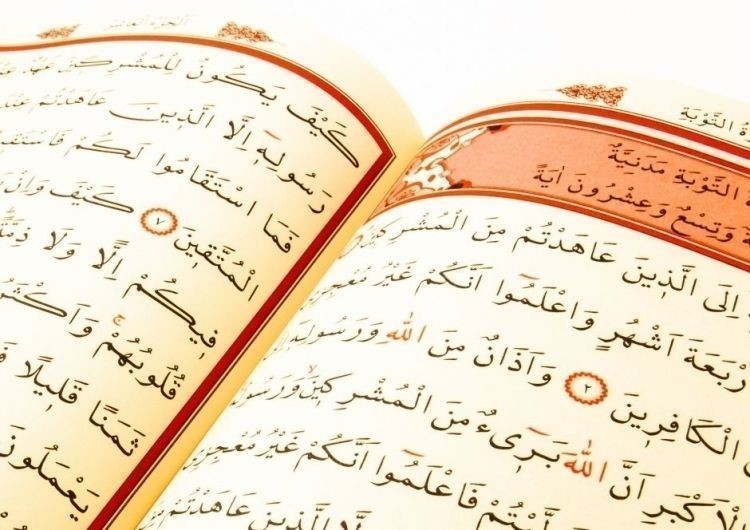 التَّوْبَةِ
التَّوْبَةِ مَدَنِيَّةٌ
وَتِسْعٌ وَعِشْرُونَ اٰيَةً
اِلَى الَّذ۪ينَ عَاهَدْتُمْ مِنَ الْمُشْرِك۪ينَ
رْبَعَةَ اَشْهُرٍ وَاعْلَمُٓوا اَنَّكُمْ غَيْرُ مُعْجِزِي
الْكَافِر۪ينَ ٢ وَاَذَانٌ مِنَ اللّٰهِ وَرَسُولِه۪ٓ
الْاَكْبَرِ اَنَّ اللّٰهَ بَر۪ٓيءٌ مِنَ الْمُشْرِك۪ينَ وَرَسُولُهُ
فَاعْلَمُٓوا اَنَّكُمْ غَيْرُ مُعْجِزِي
الَّذ۪ينَ عَاهَدْتُمْ
اَلْجُزْءُ الْعَاشِرُ
كَيْفَ يَكُونُ لِلْمُشْرِك۪ينَ عَهْدٌ عِنْدَ
رَسُولِه۪ٓ اِلَّا الَّذ۪ينَ عَاهَدْتُمْ عِنْدَ
فَمَا اسْتَقَامُوا لَكُمْ فَاسْتَق۪
الْمُتَّق۪ينَ ٧ كَيْفَ وَاِنْ
ف۪يكُمْ اِلًّا وَلَا ذِمَّةً
قُلُوبُهُمْۚ وَاَكْثَرُ
ثَمَنًا قَل۪يلًا فَ
يَعْمَلُونَ